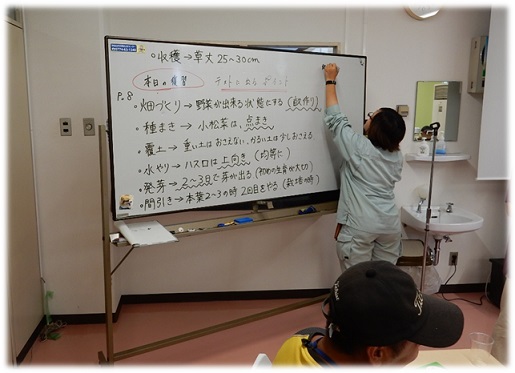 ○収穫→草丈25~30cm
本日の復習
テストに出るポイント
P.8
○畑づくり→野菜が出来る状態にする(畝作り)
○種まき→小松菜は、点まき
○覆土→重い土はおさえない、かるい土は少しおさえる
○水やり→ハス口は上向き(均等に)
○発芽→2~3日で芽が出る(初めの生育が大切)
○間引き→本葉2~3の時 2回目をやる(栽培の時)